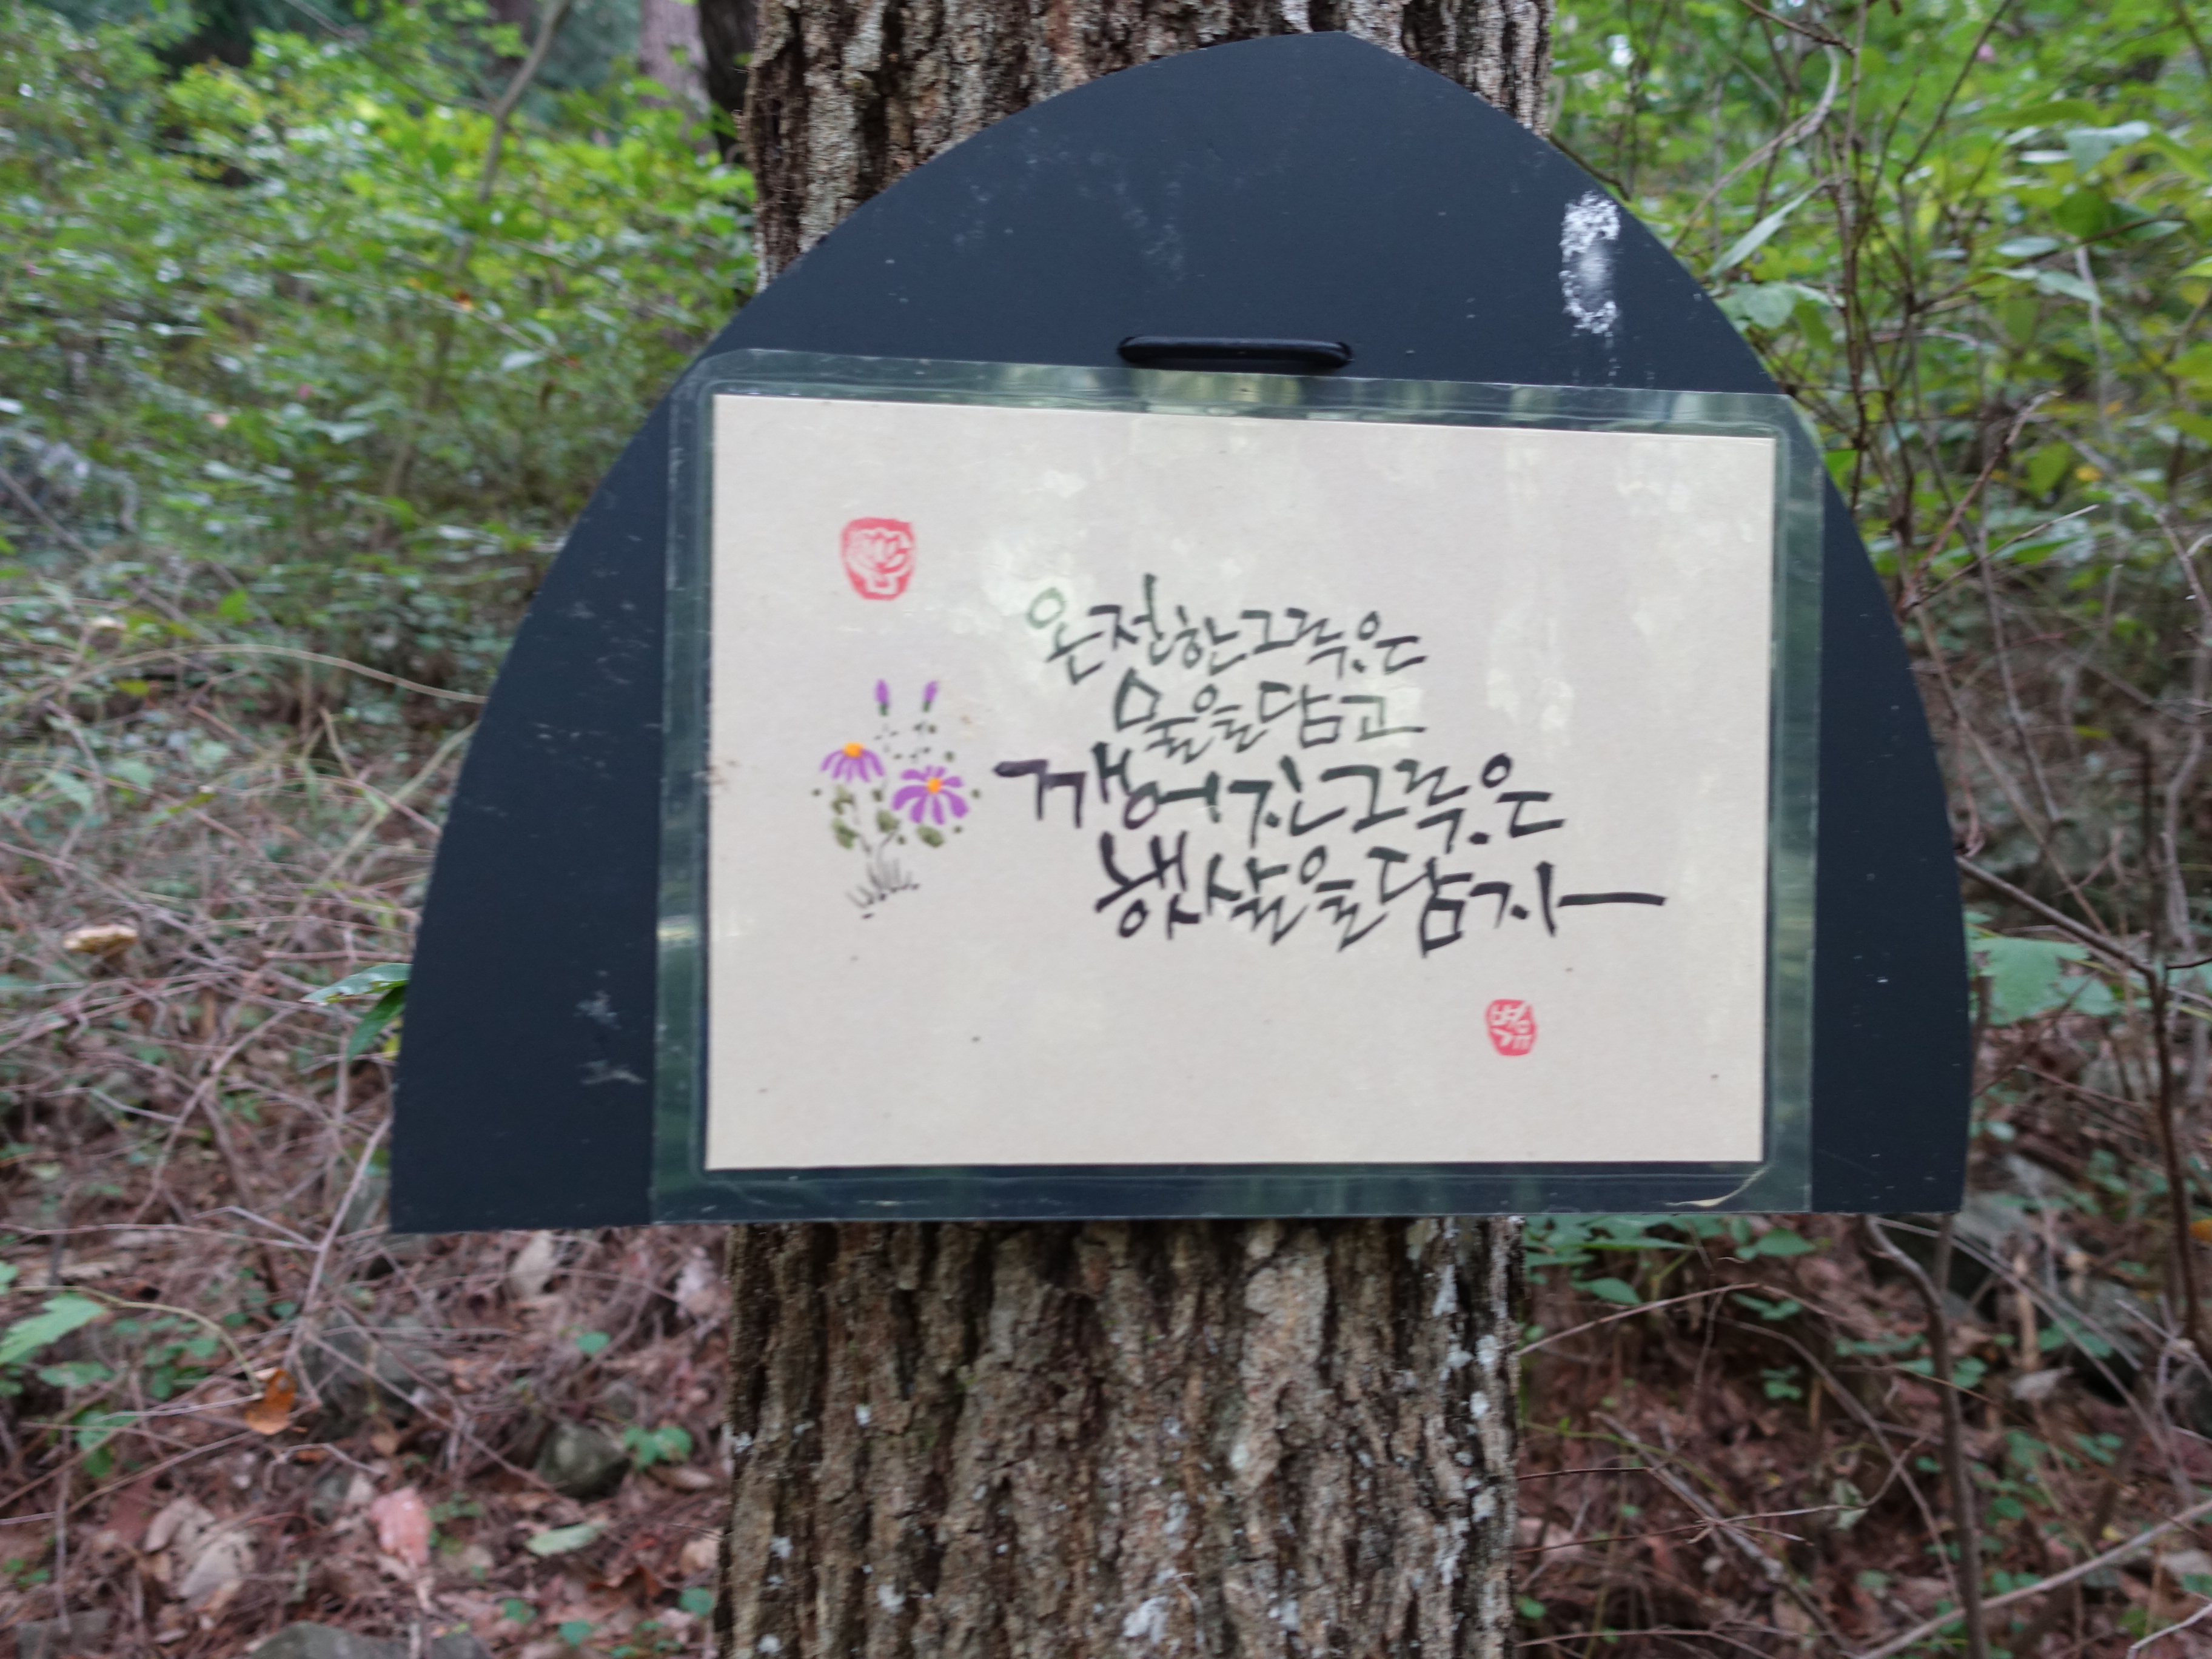 온전한 그릇은
물을 담고
깨어진 그릇은
햇살을 담지